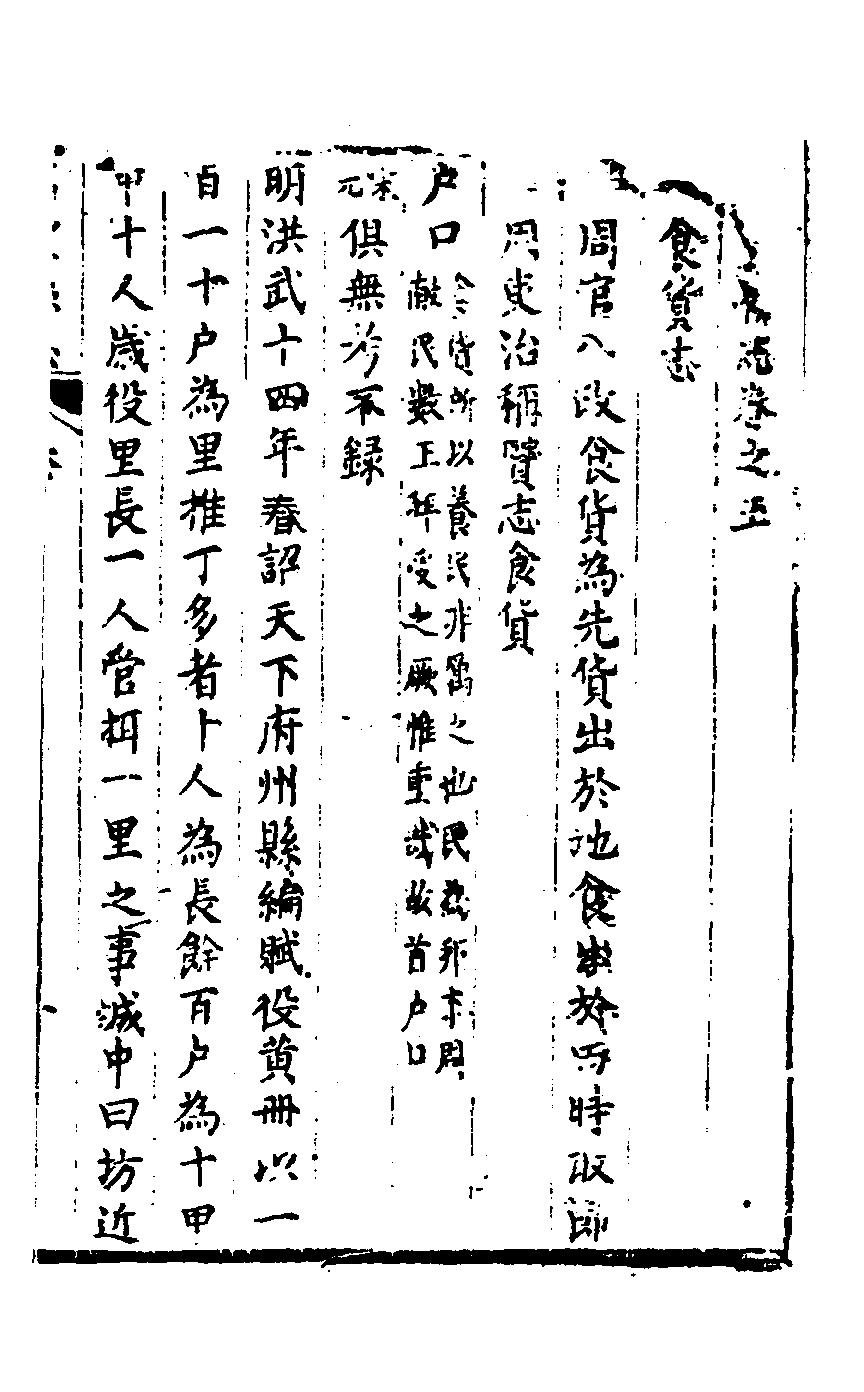 志卷之五
食貨志
周官八政食貨為先貨出於地食出於四時取節
用吏治稱賢志食貨
户口
食貨所以養民非屬之也民為邦本周
獻民數王拜受之厥惟重哉故首户口
宋元俱無考不録
明洪武十四年春詔天下府州縣編賦役黄冊以一
百一十户為里推丁多者十人為長餘百户為十甲
甲十人歲役里長一人管攝一里之事城中曰坊近